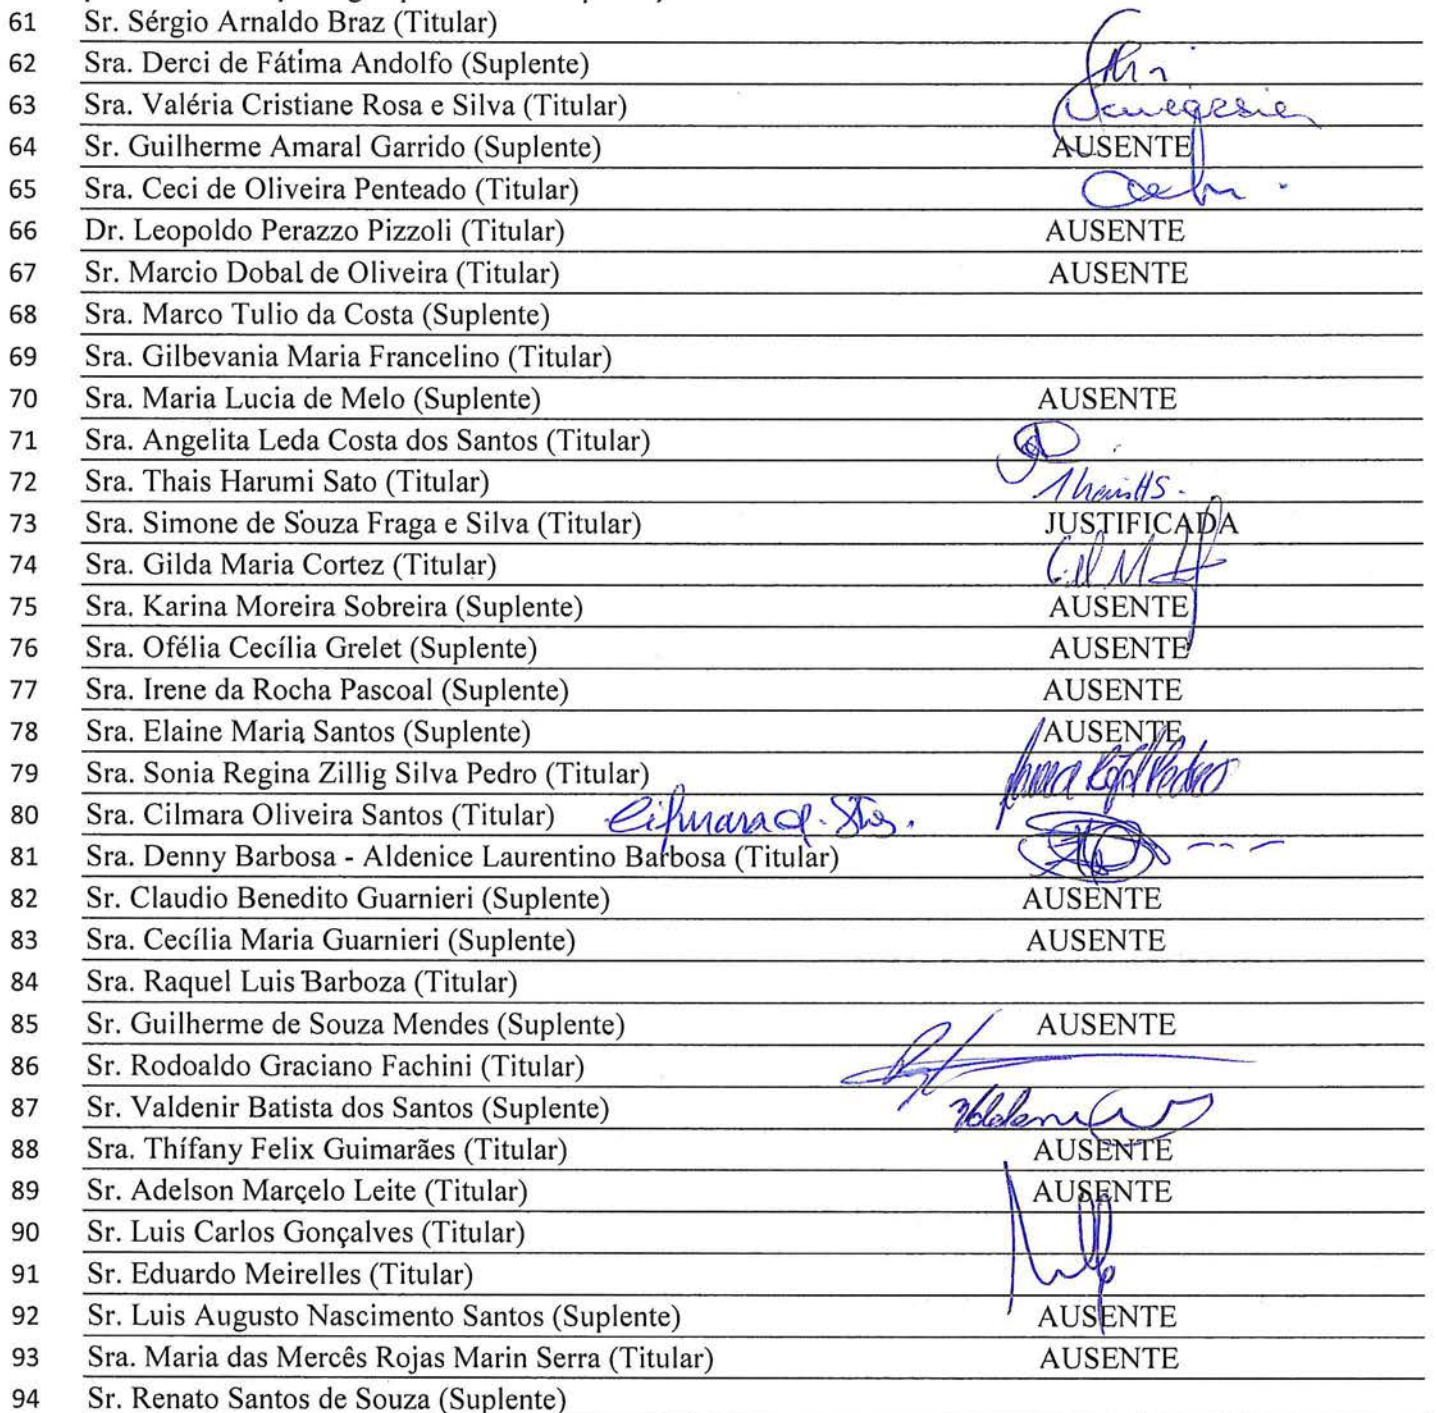 61 Sr. Sérgio Arnaldo Braz (Titular)
62 Sra. Derci de Fátima Andolfo (Suplente)
63 Sra. Valéria Cristiane Rosa e Silva (Titular)
64 Sr. Guilherme Amaral Garrido (Suplente) AUSENTE
65 Sra. Ceci de Oliveira Penteado (Titular)
66 Dr. Leopoldo Perazzo Pizzoli (Titular) AUSENTE
67 Sr. Marcio Dobal de Oliveira (Titular) AUSENTE
68 Sra. Marco Tulio da Costa (Suplente)
69 Sra. Gilbevania Maria Francelino (Titular)
70 Sra. Maria Lucia de Melo (Suplente) AUSENTE
71 Sra. Angelita Leda Costa dos Santos (Titular)
72 Sra. Thais Harumi Sato (Titular)
73 Sra. Simone de Souza Fraga e Silva (Titular) JUSTIFICADA
74 Sra. Gilda Maria Cortez (Titular)
75 Sra. Karina Moreira Sobreira (Suplente) AUSENTE
76 Sra. Ofélia Cecília Grelet (Suplente) AUSENTE
77 Sra. Irene da Rocha Pascoal (Suplente) AUSENTE
78 Sra. Elaine Maria Santos (Suplente) AUSENTE
79 Sra. Sonia Regina Zillig Silva Pedro (Titular)
80 Sra. Cilmara Oliveira Santos (Titular)
81 Sra. Denny Barbosa - Aldenice Laurentino Barbosa (Titular)
82 Sr. Claudio Benedito Guarnieri (Suplente) AUSENTE
83 Sra. Cecília Maria Guarnieri (Suplente) AUSENTE
84 Sra. Raquel Luis Barboza (Titular)
85 Sr. Guilherme de Souza Mendes (Suplente) AUSENTE
86 Sr. Rodoaldo Graciano Fachini (Titular)
87 Sr. Valdenir Batista dos Santos (Suplente)
88 Sra. Thífany Felix Guimarães (Titular) AUSENTE
89 Sr. Adelson Marçelo Leite (Titular) AUSENTE
90 Sr. Luis Carlos Gonçalves (Titular)
91 Sr. Eduardo Meirelles (Titular)
92 Sr. Luis Augusto Nascimento Santos (Suplente) AUSENTE
93 Sra. Maria das Mercês Rojas Marin Serra (Titular) AUSENTE
94 Sr. Renato Santos de Souza (Suplente)